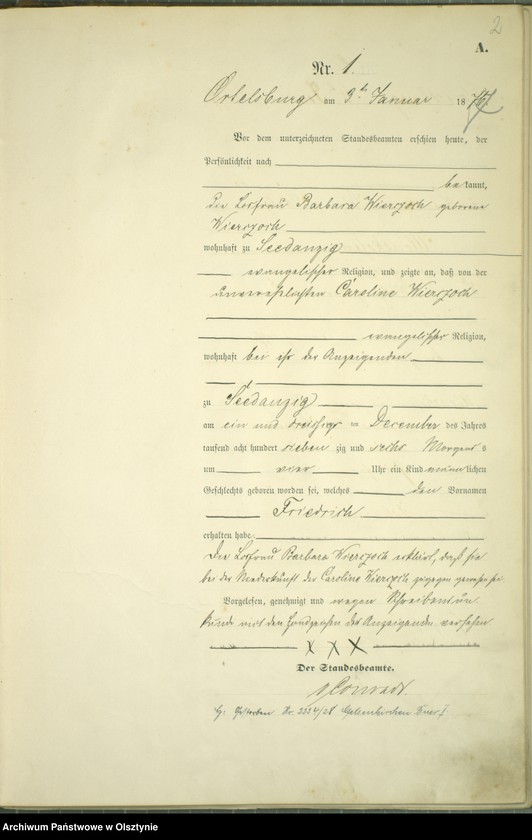 2
A.
Nr. 1.
Ortelsburg am 3ten Januar 1877
Vor dem unterzeichneten Standesbeamten erschien heute, der
Persönlichkeit nach
bekannt,
die Losfrau Barbara Wierczoch geborene
Wierczoch
wohnhaft zu Seedanzig
evangelischer Religion, und zeigte an, daß von der
unverehelichten Caroline Wierczoch
evangelischer Religion,
wohnhaft bei ihr der Anzeigenden
zu Seedanzig
am ein und dreißigsten December des Jahres
tausend acht hundert siebenzig und sechs Morgens
um vier Uhr ein Kind männlichen
Geschlechts geboren worden sei, welches den Vornamen
Friedrich
erhalten habe.
Die Losfrau Barbara Wierczoch erklärt, daß sie
bei der Niederkunft der Caroline Wierczoch zugegen gewesen sei
Vorgelesen, genehmigt und wegen Schreibensun
kunde mit den Handzeichen der Anzeigenden versehen
XXX
Der Standesbeamte.
Conradt.
G: Gestorben Nr. 2224/28 Gelsenkirchen I
Archiwum Państwowe w Olsztynie